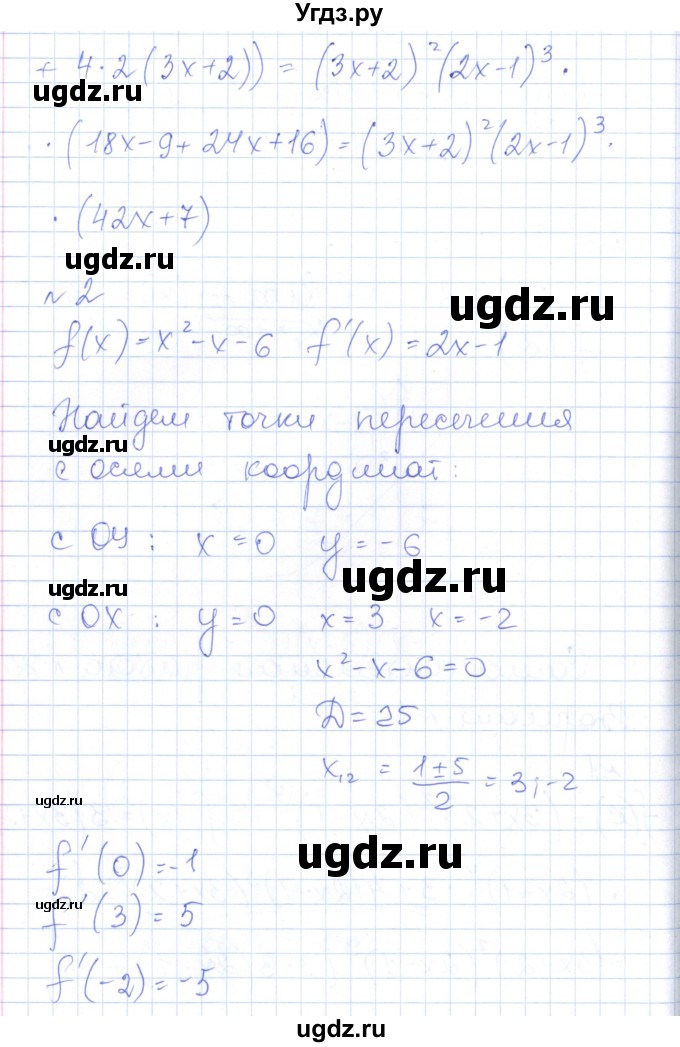 Угдз.ру
+ 4·2(3x+2)) = (3x+2)²(2x-1)³·
ugdz.ru
·(18x-9+24x+16)=(3x+2)²(2x-1)³·
ugdz.ru
·(42x+7)
ugdz.ru
№2
ugdz.ru
f(x)=x²-x-6 f'(x)=2x-1
Найдем точки пересечения
ugdz.ru
с осями координат:
с ОУ: x=0 y=-6
ugdz.ru
ugdz.ru
с ОХ: y=0 x=3 x=-2
x²-x-6=0
Д=25
x₁,₂ = (1±5)/2 = 3; -2
ugdz.ru
ugdz.ru
f'(0)=-1
ugdz.ru
f'(3)=5
f'(-2)=-5
ugdz.ru